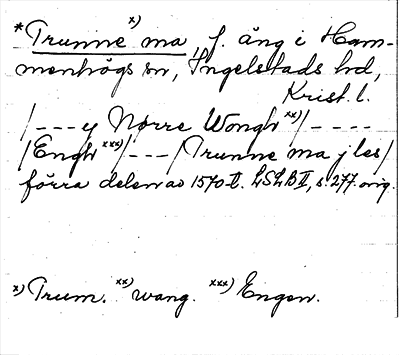 * Trunne x) ma, f. äng i Ham-
menhögs sn, Ingelstads hd,
Krist. l.
/ - - - y Nørre Wongh xx) / - - - -
/ Engh xxx) / - - - / Trunne ma j les /
förra delen av 1570-t. LSLB II, s. 277. orig.
x) Trum. xx) wang. xxx) Engen.